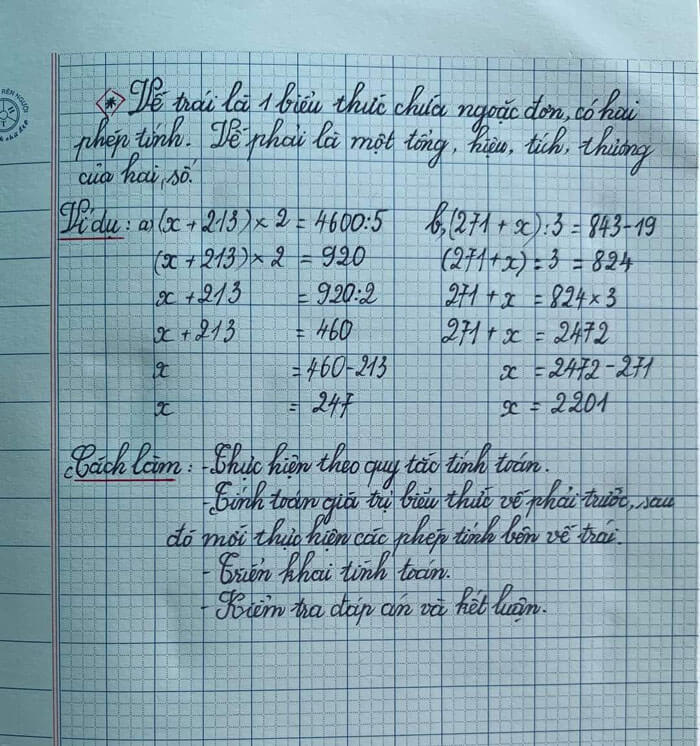 * Vế trái là 1 biểu thức chứa ngoặc đơn, có hai
phép tính. Vế phải là một tổng, hiệu, tích, thương
của hai, số.
Ví dụ: a) (x + 213) × 2 = 4600:5
(x + 213) × 2 = 920
x + 213 = 920:2
x + 213 = 460
x = 460-213
x = 247
b, (271 + x) : 3 = 843-19
(271+x) : 3 = 824
271 + x = 824 × 3
271 + x = 2472
x = 2472-271
x = 2201
Cách làm: - Thực hiện theo quy tắc tính toán.
- Tính toán giá trị biểu thức vế phải trước, sau
đó mới thực hiện các phép tính bên vế trái.
- Triển khai tính toán.
- Kiểm tra đáp án và kết luận.
RÈN NGƯỜI